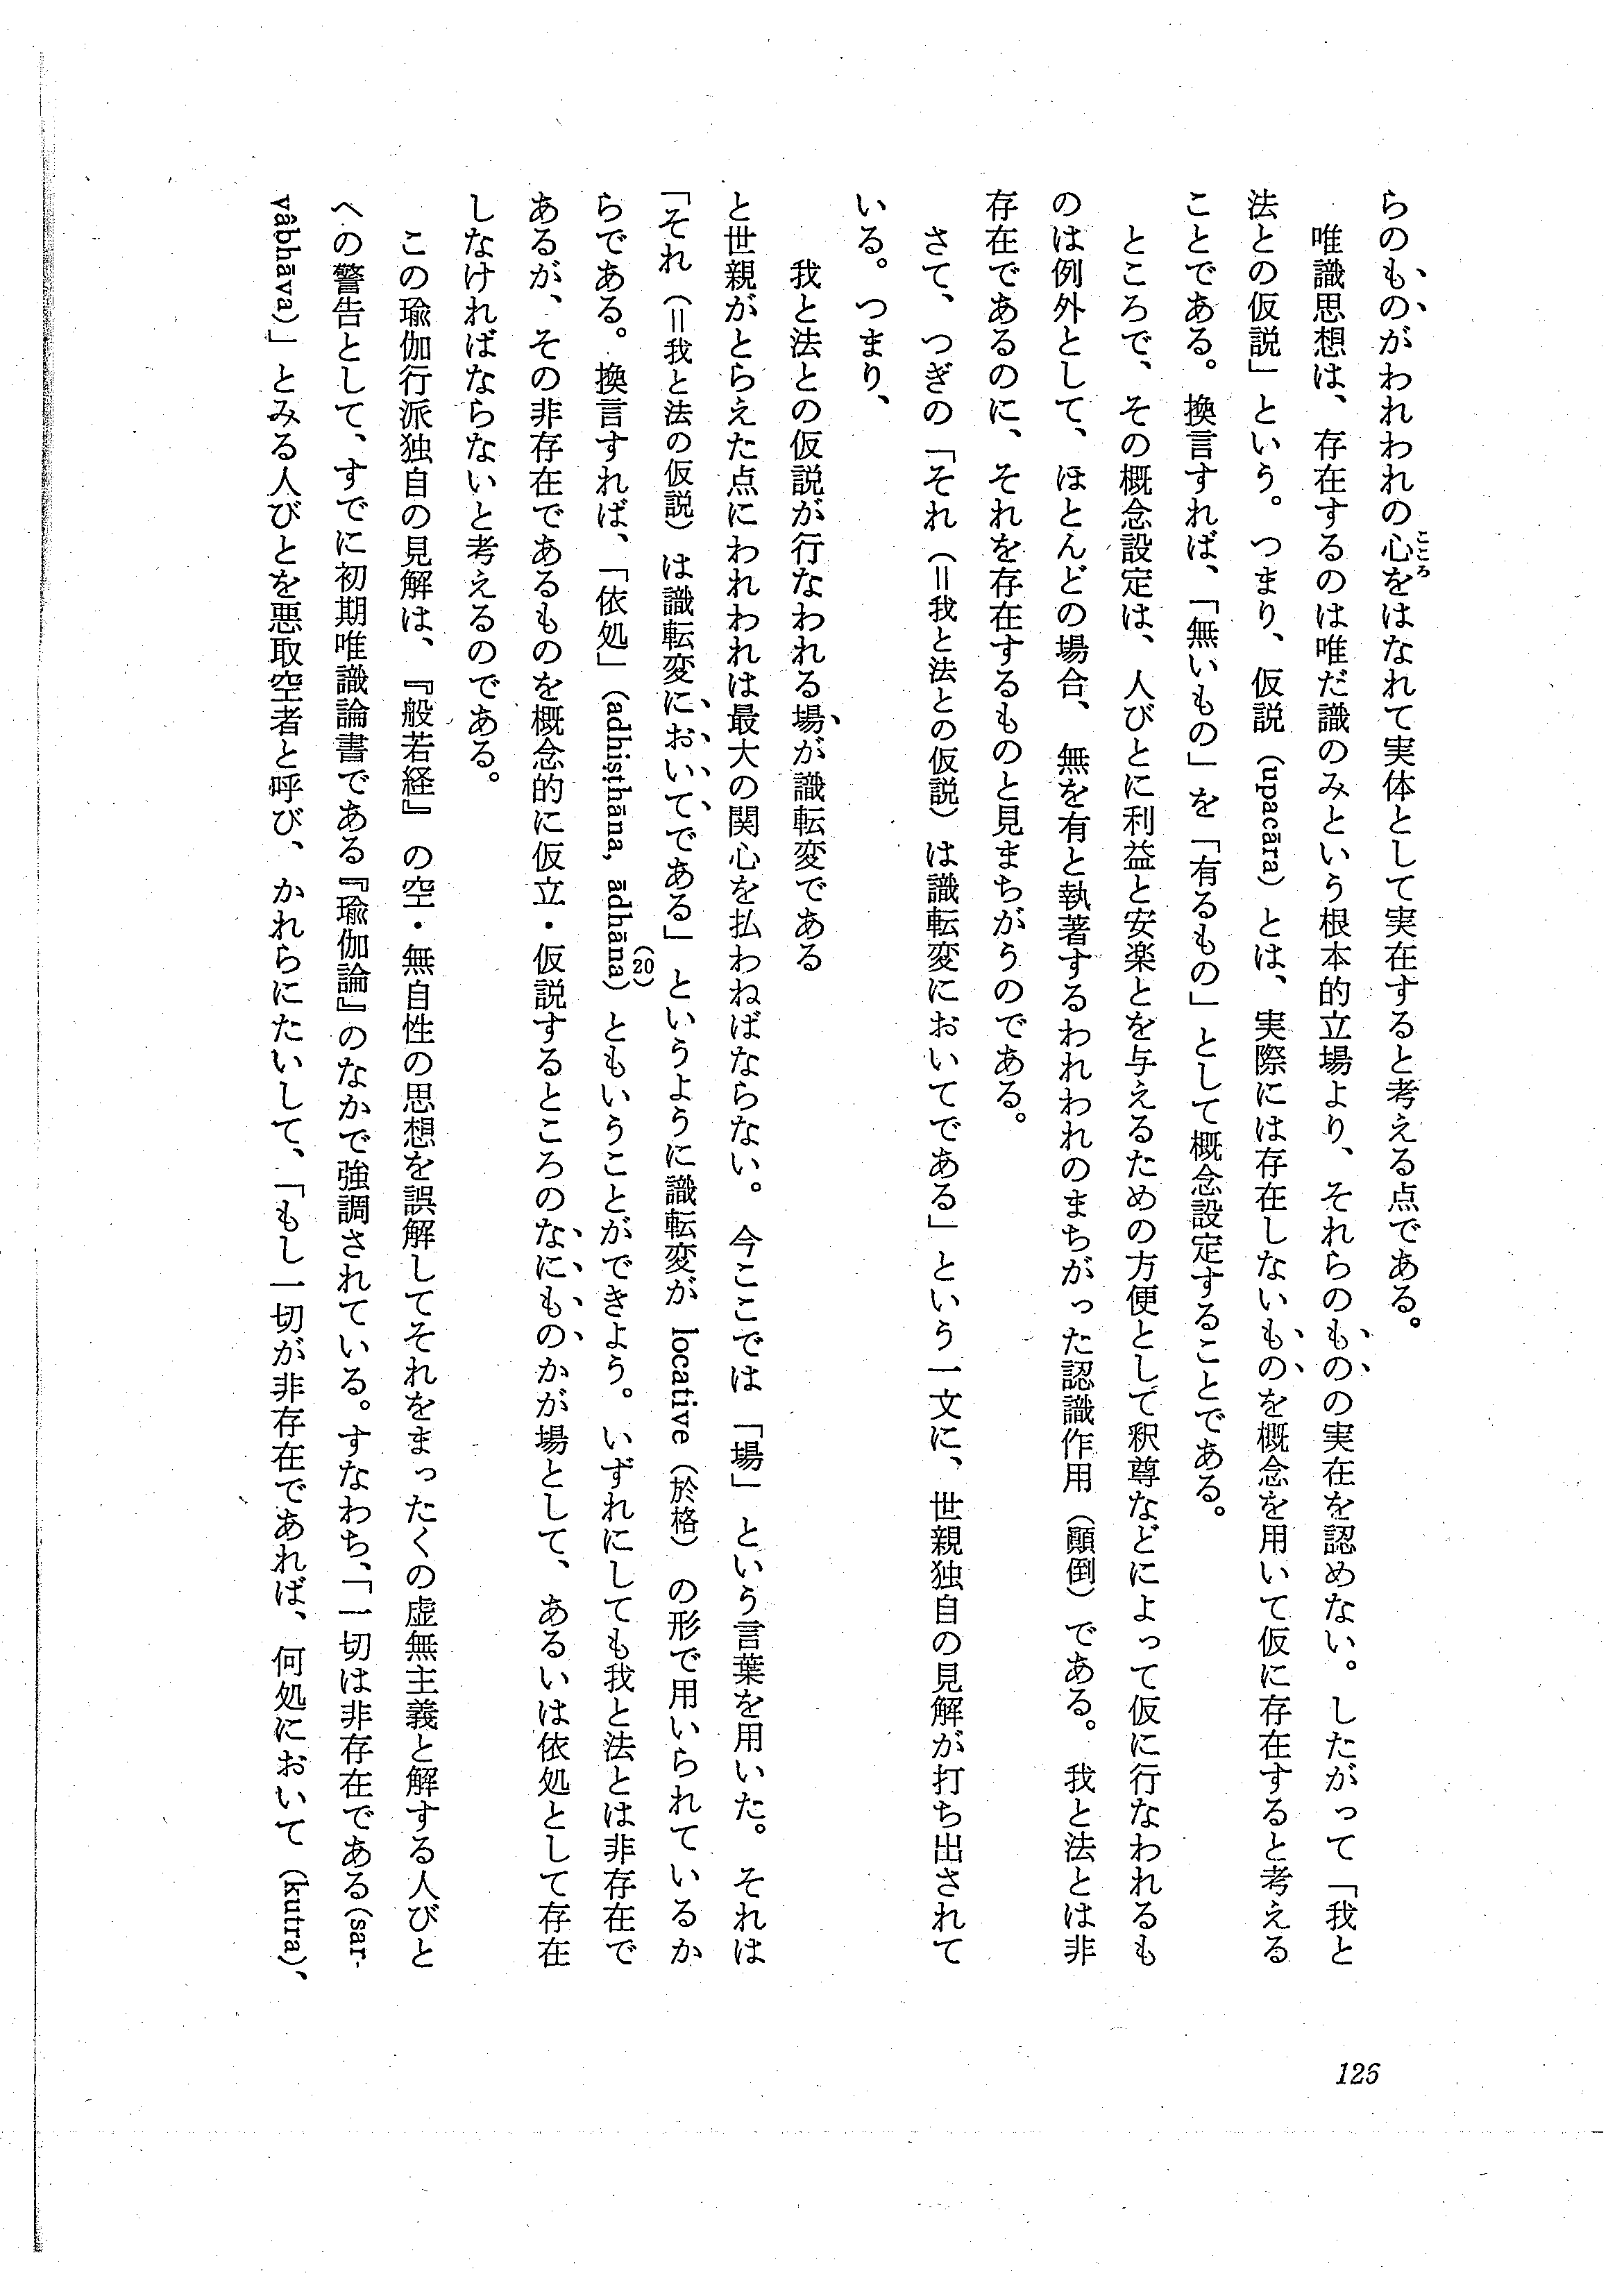 らのものがわれわれの心をはなれて実体として実在すると考える点である。
こころ
唯識思想は、存在するのは唯だ識のみという根本的立場より、それらのものの実在を認めない。したがって「我と
法との仮説」という。つまり、仮説（upacāra）とは、実際には存在しないものを概念を用いて仮に存在すると考える
ことである。換言すれば、「無いもの」を「有るもの」として概念設定することである。
ところで、その概念設定は、人びとに利益と安楽とを与えるための方便として釈尊などによって仮に行なわれるも
のは例外として、ほとんどの場合、無を有と執著するわれわれのまちがった認識作用（顚倒）である。我と法とは非
存在であるのに、それを存在するものと見まちがうのである。
さて、つぎの「それ（＝我と法との仮説）は識転変においてである」という一文に、世親独自の見解が打ち出されて
いる。つまり、
我と法との仮説が行なわれる場が識転変である
と世親がとらえた点にわれわれは最大の関心を払わねばならない。今ここでは「場」という言葉を用いた。それは
「それ（＝我と法の仮説）は識転変においてである」というように識転変が locative（於格）の形で用いられているか
らである。換言すれば、「依処」（adhiṣṭhāna, ādhāna）(20)ともいうことができよう。いずれにしても我と法とは非存在で
あるが、その非存在であるものを概念的に仮立・仮説するところのなにものかが場として、あるいは依処として存在
しなければならないと考えるのである。
この瑜伽行派独自の見解は、『般若経』の空・無自性の思想を誤解してそれをまったくの虚無主義と解する人びと
への警告として、すでに初期唯識論書である『瑜伽論』のなかで強調されている。すなわち、「一切は非存在である（sar-
vâbhāva）」とみる人びとを悪取空者と呼び、かれらにたいして、「もし一切が非存在であれば、何処において（kutra）、
126